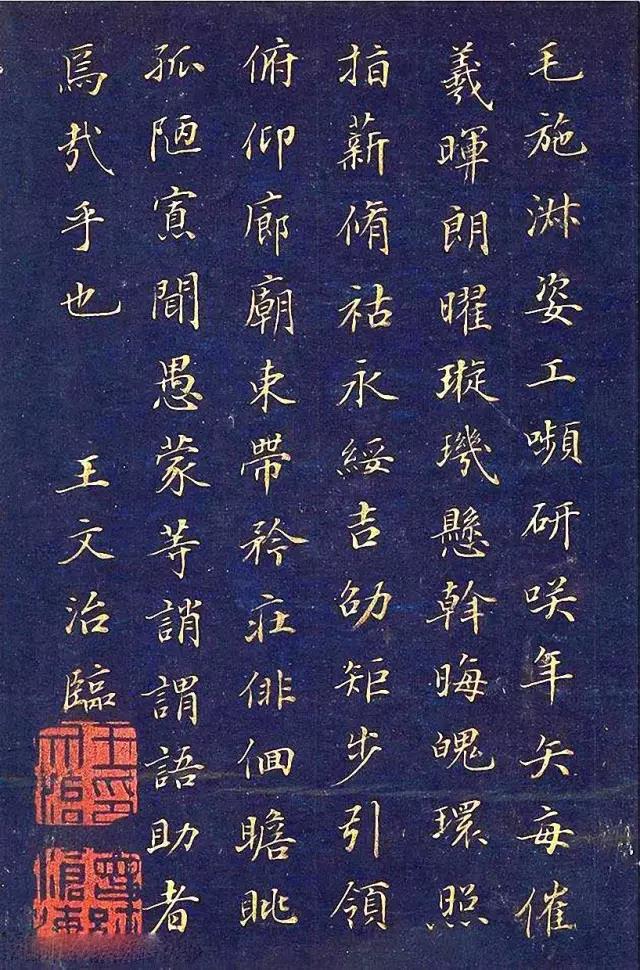 毛施淑姿工嚬研咲年矢每催
羲暉朗曜璇璣懸斡晦魄環照
指薪脩祜永綏吉劭矩步引領
俯仰廊廟束帶矜莊俳佪瞻眺
孤陋寡聞愚蒙等誚謂語助者
焉哉乎也 王文治臨
王文治印